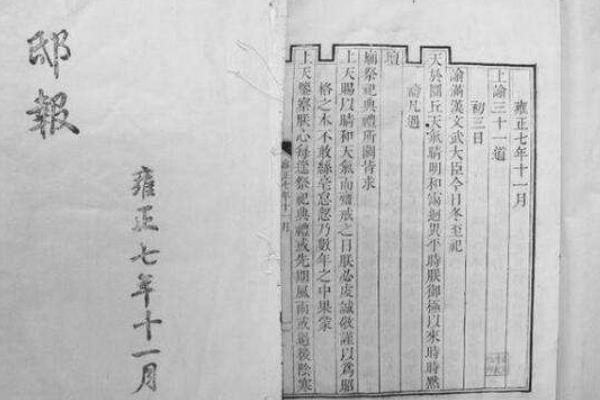 邸報
雍正七年十一月
雍正七年十一月
上諭三十一道
初三日
諭滿漢文武大臣今日冬至祀
天於圜丘天氣晴明和靄迥異平時朕御極以來時時默
諭凡遇
壇
廟祭祀典禮所關皆求
上天賜以晴和天氣而齋戒之日朕必虔誠敬謹以為昭
格之本不敢絲毫怠忽乃數年之中果蒙
上天鑒察朕心每逢祭祀典禮或先期風雨或過後陰寒
雍正七年十一月